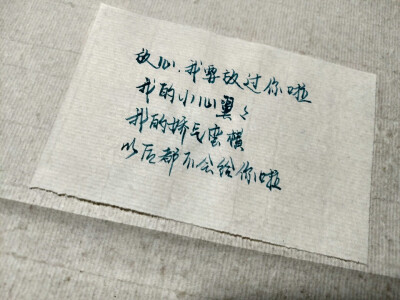 放心.我要放过你啦
我的小心翼々
我的娇气蛮横
以后都不会给你啦